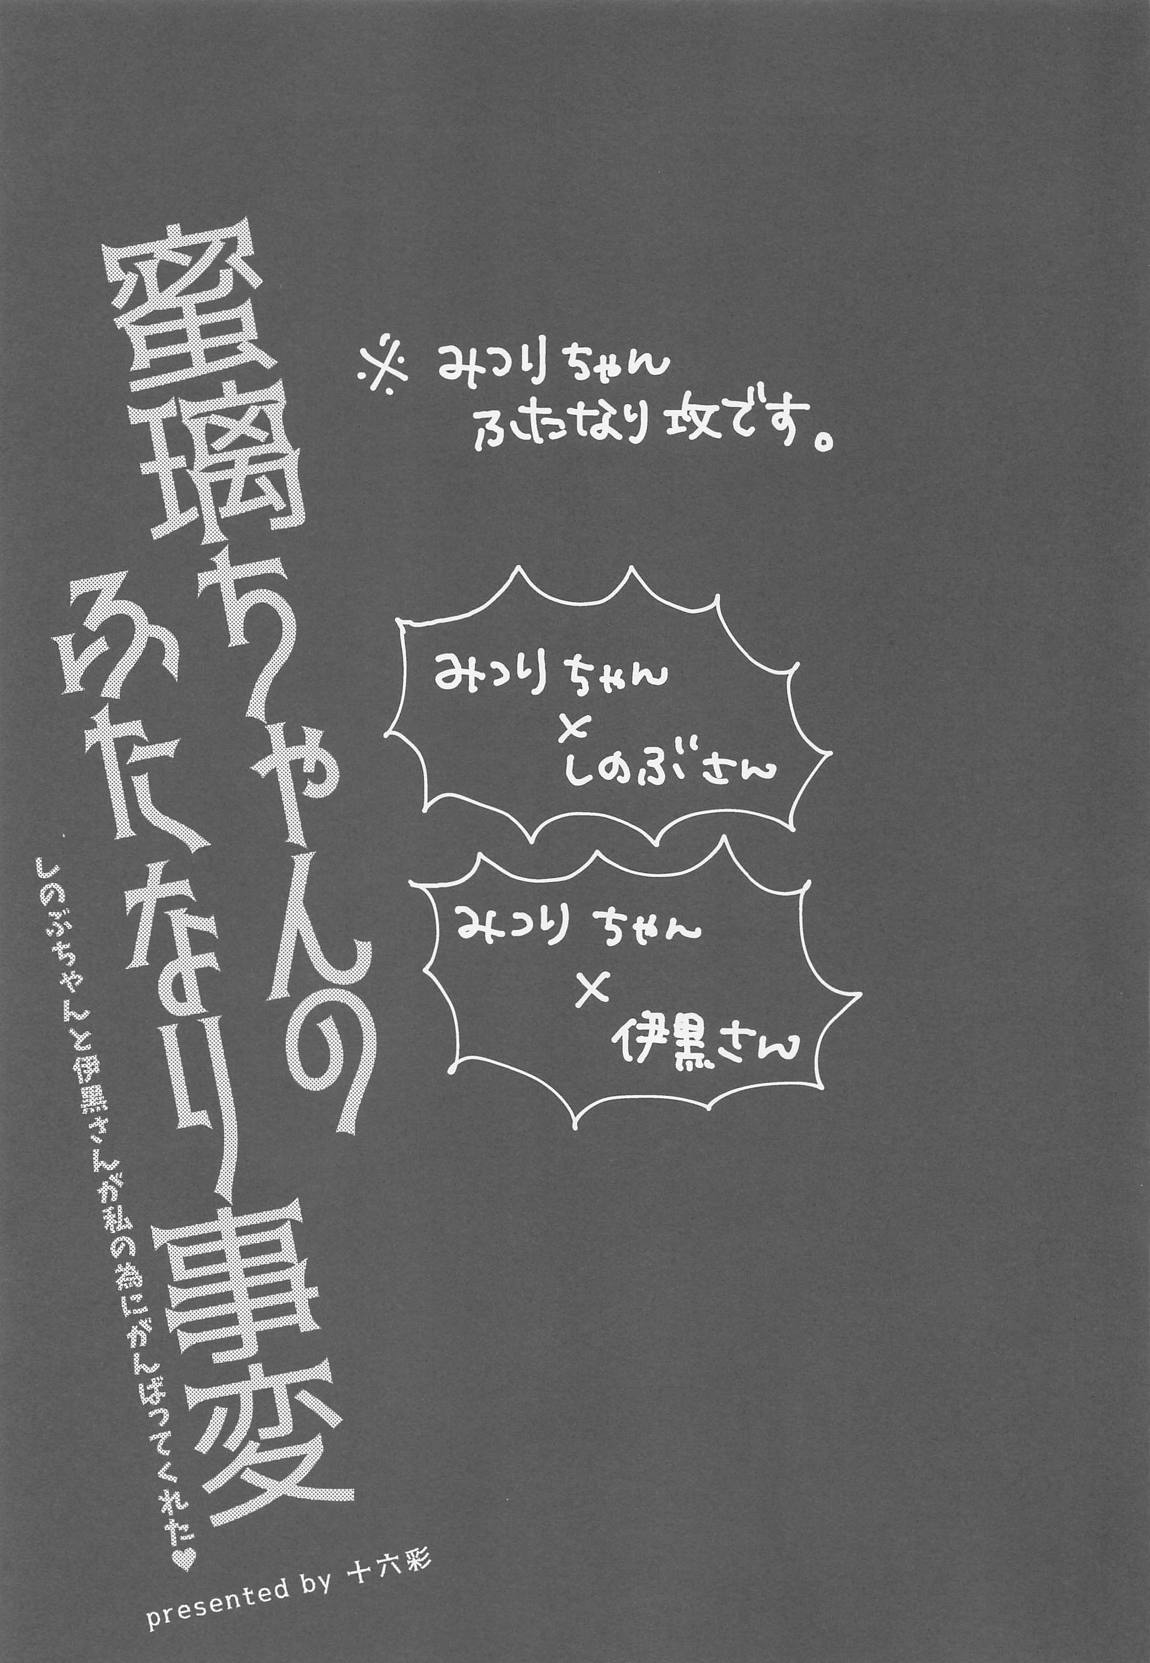 蜜璃ちゃんの
ふたなり事変
しのぶちゃんと伊黒さんが私の為にがんばってくれた♥
presented by 十六彩
※ みつりちゃん
ふたなり攻です。
みつりちゃん
×
しのぶさん
みつりちゃん
×
伊黒さん